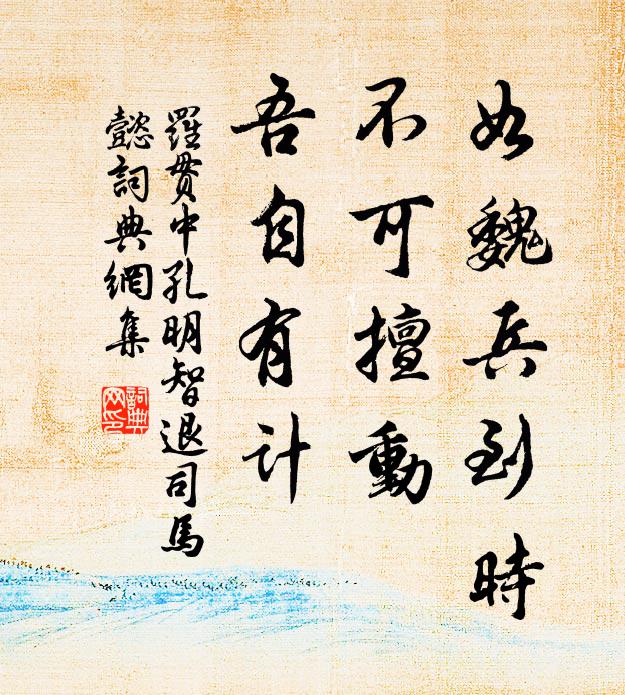 如魏兵到時
不可擅動
吾自有计
羅贯中孔明智退司馬
懿詞典網集
詞典
网印